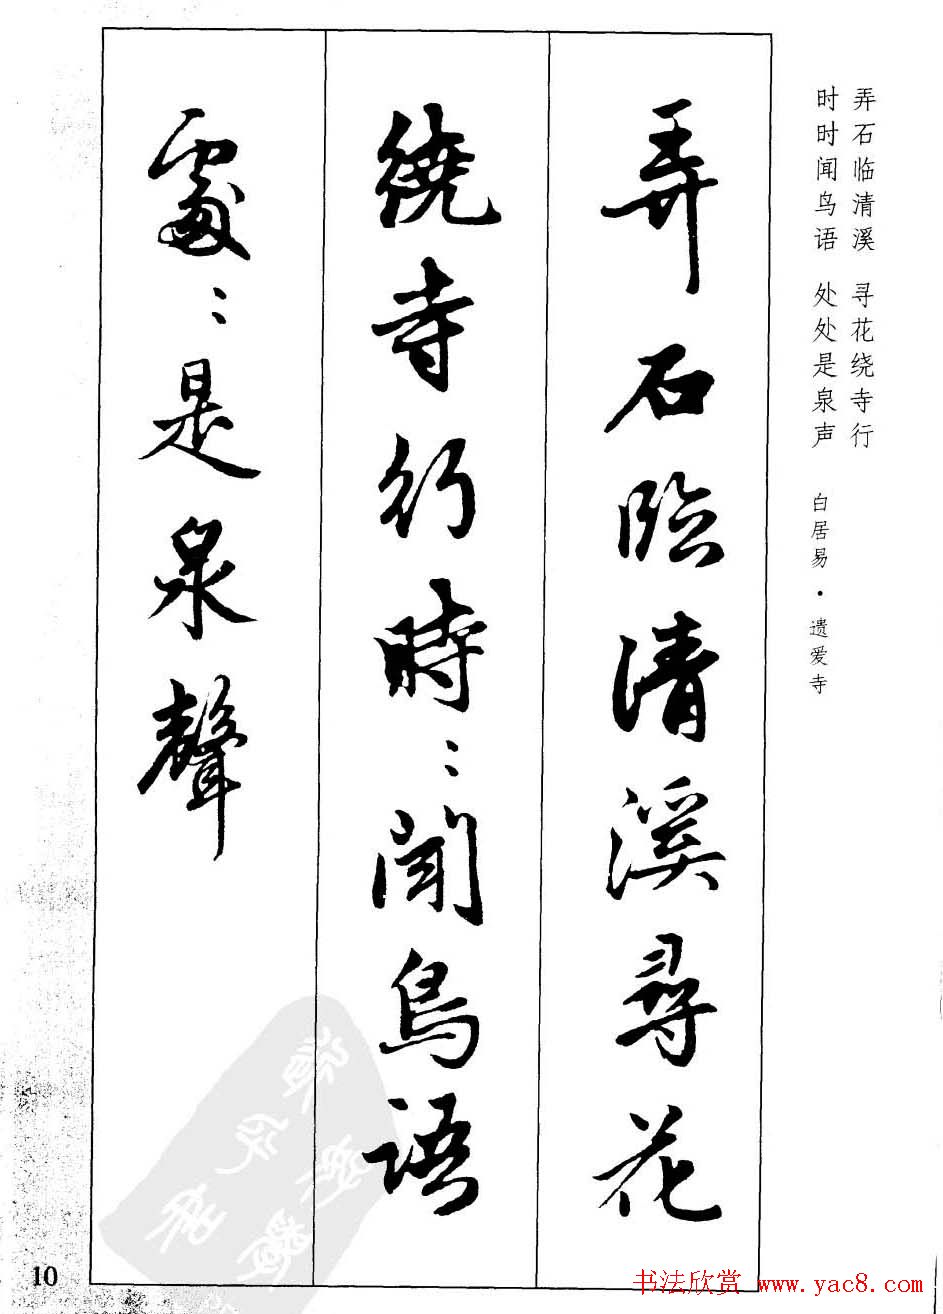 弄石临清溪 寻花绕寺行
时时闻鸟语 处处是泉声
白居易·遗爱寺
弄石臨清溪尋花
繞寺行時:聞鳥語
處:是泉聲
10
书法欣赏 www.yac8.com